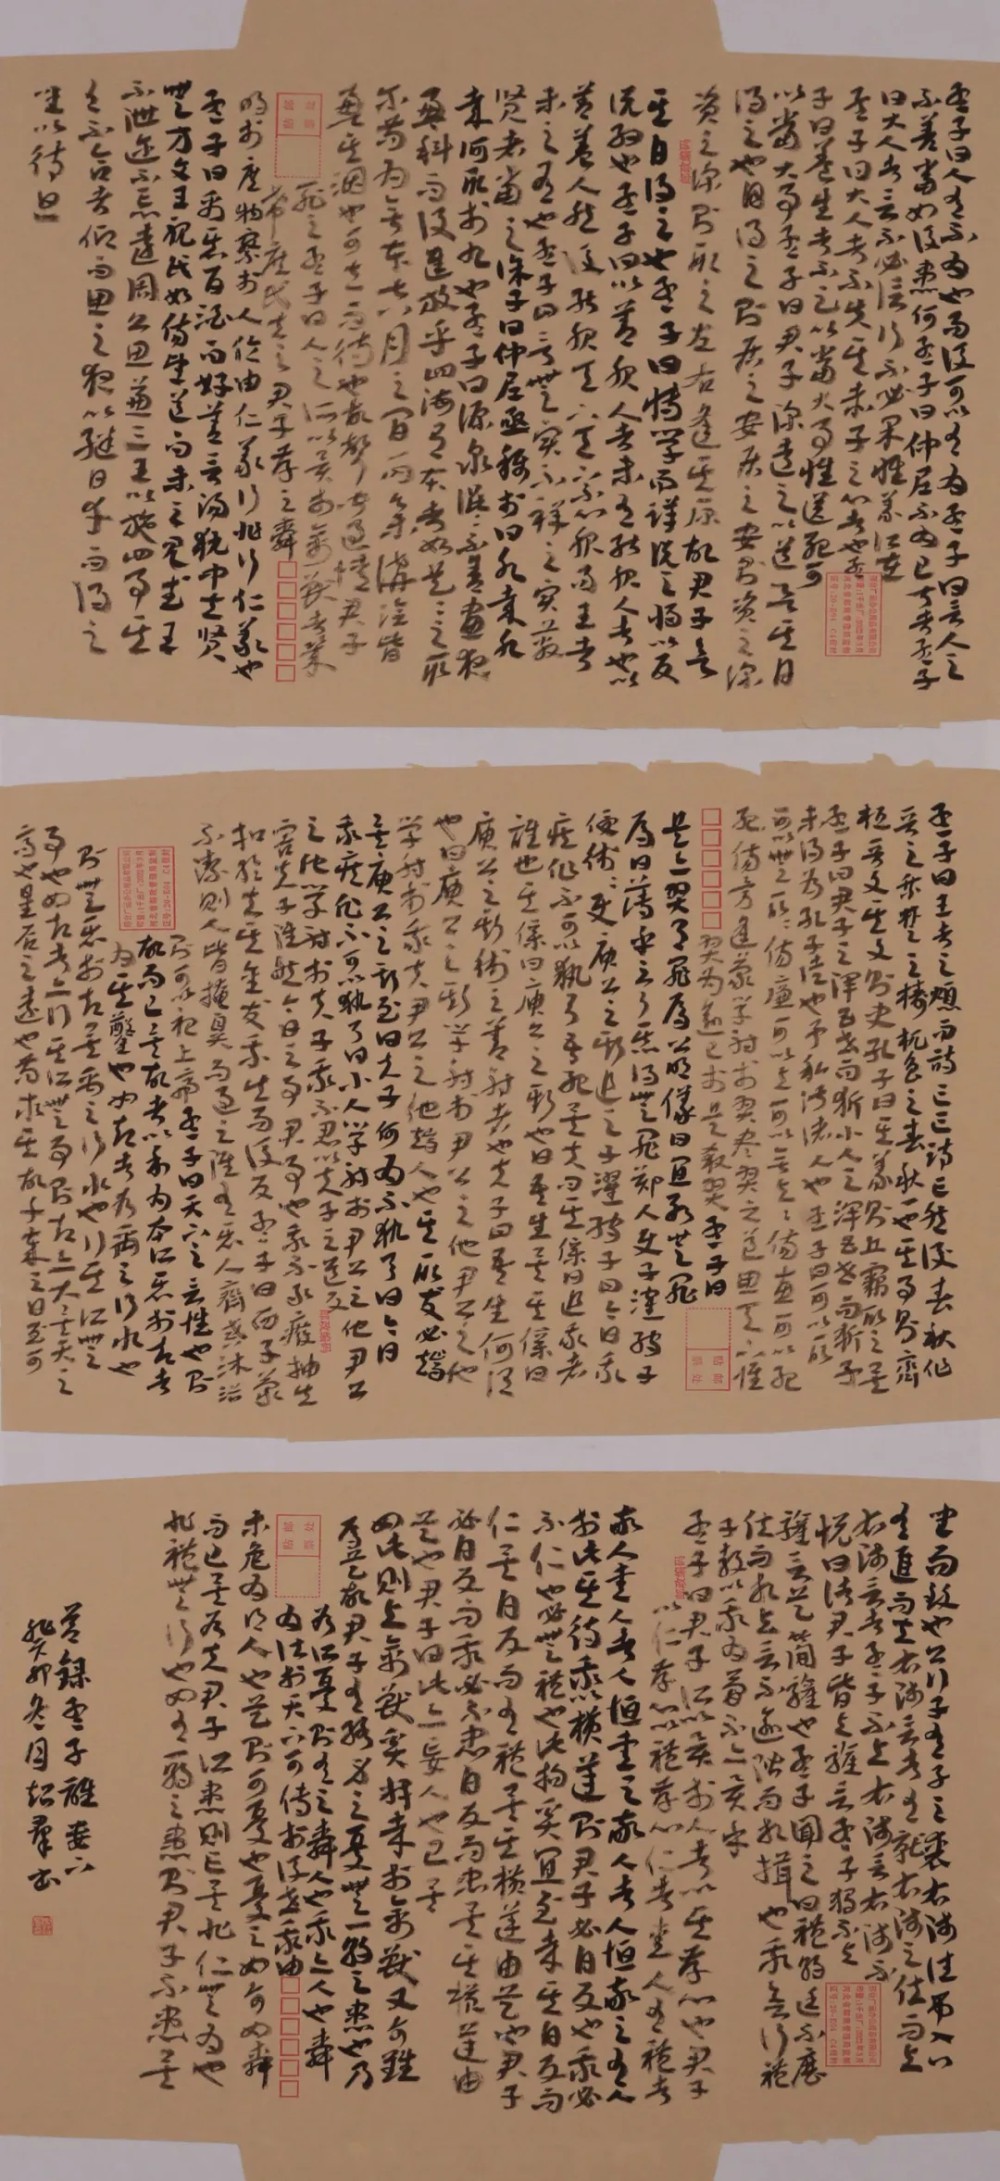 孟子曰人有不为也而后可以有为孟子曰言人之
不善当如后患何孟子曰仲尼不为已甚者孟子
曰大人者言不必信行不必果惟义所在
孟子曰大人者不失其赤子之心者也孟
子曰养生者不足以当大事惟送死可
以当大事孟子曰君子深造之以道欲其自
得之也自得之则居之安居之安则资之深
资之深则取之左右逢其原故君子欲
其自得之也孟子曰博学而详说之将以反
说约也孟子曰以善服人者未有能服人者也以
善养人然后能服天下天下不心服而王者
未之有也孟子曰言无实不祥之实蔽
贤者当之徐子曰仲尼亟称于水曰水哉水
哉何取于水也孟子曰源泉混混不舍昼夜
盈科而后进放乎四海有本者如是是之取
尔苟为无本七八月之间雨集沟浍皆
盈其涸也可立而待也故声闻过情君子
耻之孟子曰人之所以异于禽兽者几
希庶民去之君子存之舜
明于庶物察于人伦由仁义行非行仁义也
孟子曰禹恶旨酒而好善言汤执中立贤
无方文王视民如伤望道而未之见武王
不泄迩不忘远周公思兼三王以施四事其
有不合者仰而思之夜以继日幸而得之
坐以待旦
孟子曰王者之熄而诗亡诗亡然后春秋作
晋之乘楚之梼杌鲁之春秋一也其事则齐
桓晋文其文则史孔子曰其义则丘窃取之矣
孟子曰君子之泽五世而斩小人之泽五世而斩予
未得为孔子徒也予私淑诸人也孟子曰可以取
可以无取取伤廉可以与可以无与与伤惠可以死
死伤勇逢蒙学射于羿尽羿之道思天下惟
羿为愈己于是杀羿孟子曰
是亦羿有罪焉公明仪曰宜若无罪
焉曰薄乎云尔恶得无罪郑人使子濯孺子
侵卫卫使庾公之斯追之子濯孺子曰今日我
疾作不可以执弓吾死矣夫问其仆曰追我者
谁也其仆曰庾公之斯也曰吾生矣其仆曰
庾公之斯卫之善射者也夫子曰吾生何谓
也曰庾公之斯学射于尹公之他尹公之他
学射于我夫尹公之他端人也其取友必端
矣庾公之斯至曰夫子何为不执弓曰今日
我疾作不可以执弓曰小人学射于尹公之他尹公
之他学射于夫子我不忍以夫子之道反
害夫子虽然今日之事君事也我不敢废抽矢
扣轮去其金发乘矢而后反孟子曰西子蒙
不洁则人皆掩鼻而过之虽有恶人齐戒沐浴
则可以祀上帝孟子曰天下之言性也则
故而已矣故者以利为本所恶于智者
为其凿也如智者若禹之行水也
则无恶于智矣禹之行水也行其所无
事也如智者亦行其所无事则智亦大矣天之
高也星辰之远也苟求其故千岁之日至可
坐而致也公行子有子之丧右师往吊入门
有进而与右师言者有就右师之位而与
右师言者孟子不与右师言右师不
悦曰诸君子皆与驩言孟子独不与
驩言是简驩也孟子闻之曰礼朝廷不历
位而相与言不逾阶而相揖也我欲行礼
子敖以我为简不亦异乎
孟子曰君子所以异于人者以其存心也君子
以仁存心以礼存心仁者爱人有礼者
敬人爱人者人恒爱之敬人者人恒敬之有人
于此其待我以横逆则君子必自反也我必
不仁也必无礼也此物奚宜至哉其自反而
仁矣自反而有礼矣其横逆由是也君子
必自反而我必不忠自反而忠矣其横逆由
是也君子曰此亦妄人也已矣
如此则与禽兽奚择哉于禽兽又何难
焉是故君子有终身之忧无一朝之患也乃
若所忧则有之舜人也我亦人也舜
为法于天下可传于后世我由
未免为乡人也是则可忧也忧之如何如舜
而已矣若夫君子所患则亡矣非仁无为也
非礼无行也如有一朝之患则君子不患矣
孟子离娄下
癸卯冬月超群书